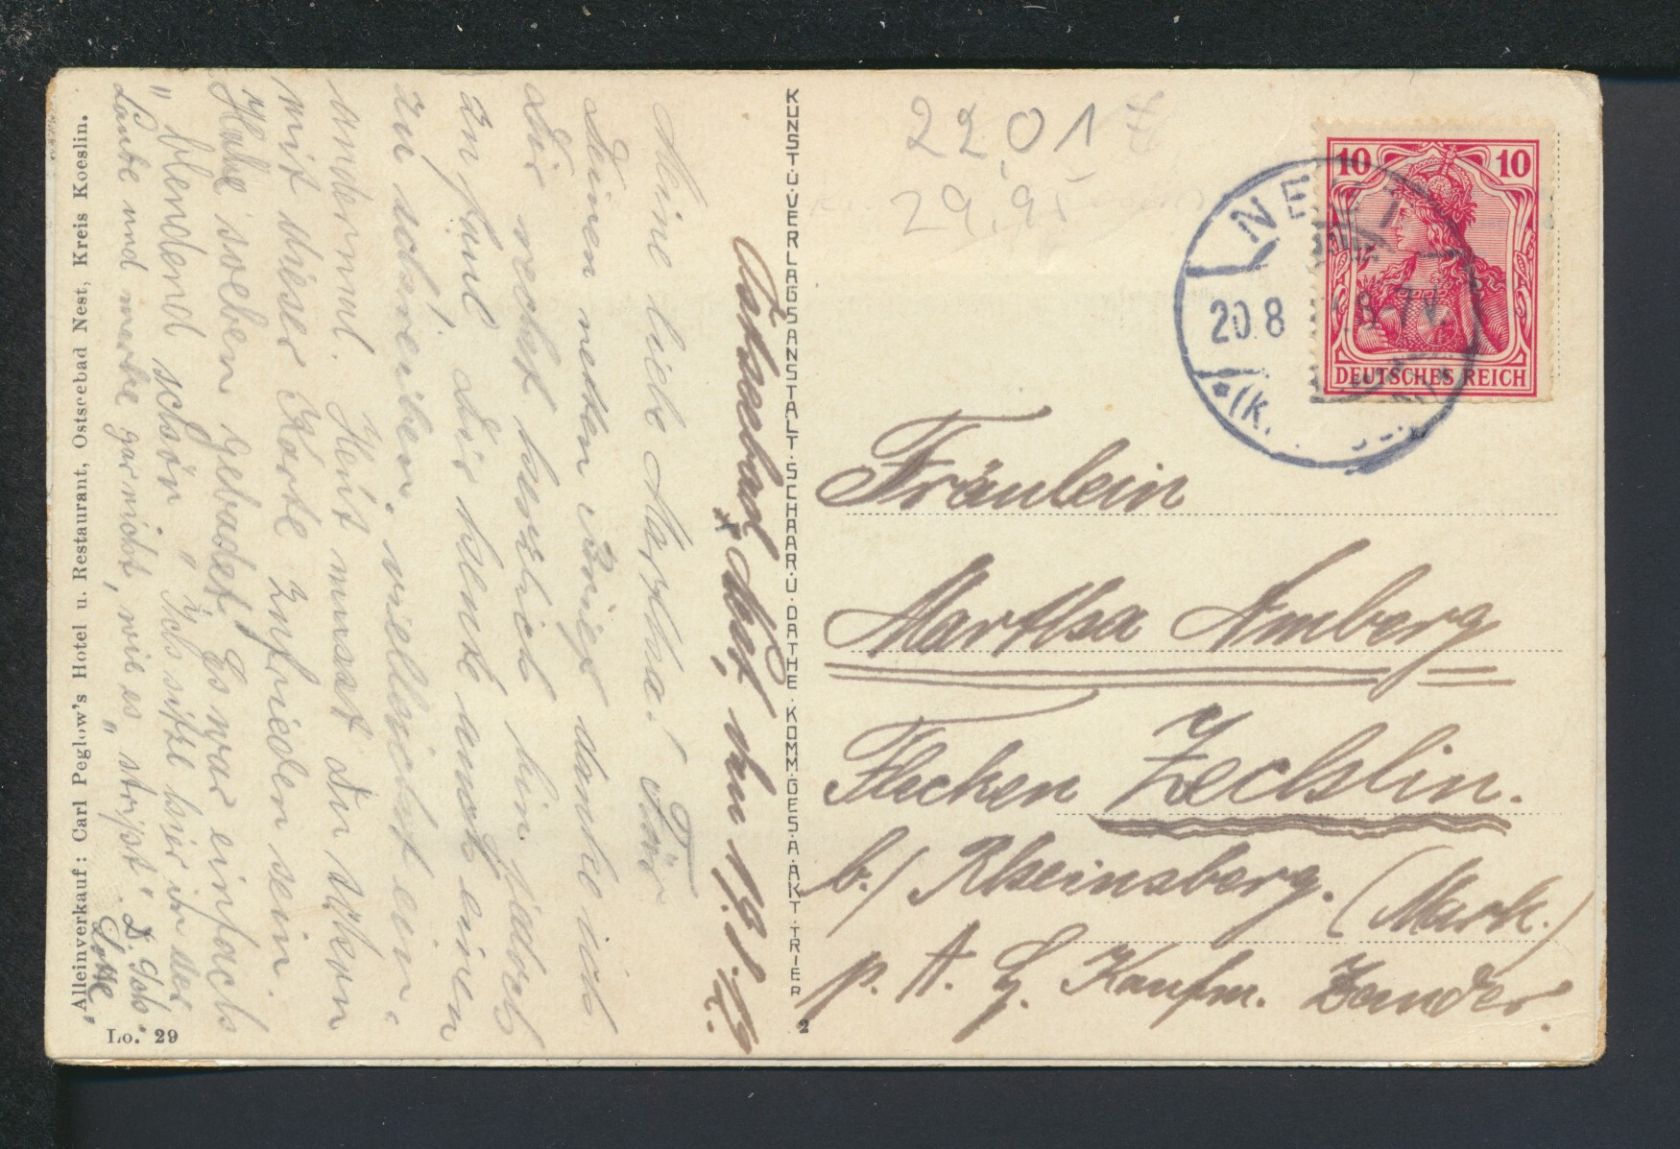 Ostseebad Nest, den 19.8.
Meine liebe Martha! Für
Deinen netten Brief danke ich
Dir recht herzlich bin jedoch
zu faul Dir heute noch einen
zu schreiben, vielleicht ein
andermal. Heut musst Du schon
mit dieser Karte zufrieden sein.
Habe soeben gebadet. Es war einfach
"blendend schön" Ich sitze hier in der
Laube und merke gar nicht, wie es "
Lotte.
Alleinverkauf: Carl Peglow's Hotel u. Restaurant, Ostseebad Nest, Kreis Koeslin.
Lo. 29
KUNST-U-VERLAGSANSTALT-SCHAAR-U-DATHE-KOMM-GES-A-AKT-TRIER
2
22,01
29,95
10 10
DEUTSCHES REICH
NEST
20.8 8-7V.
*(K.
Fräulein
Martha Amberg
Flecken Zechlin.
b./ Rheinsberg. (Mark.)
p. A. H. Kaufm. Zander.